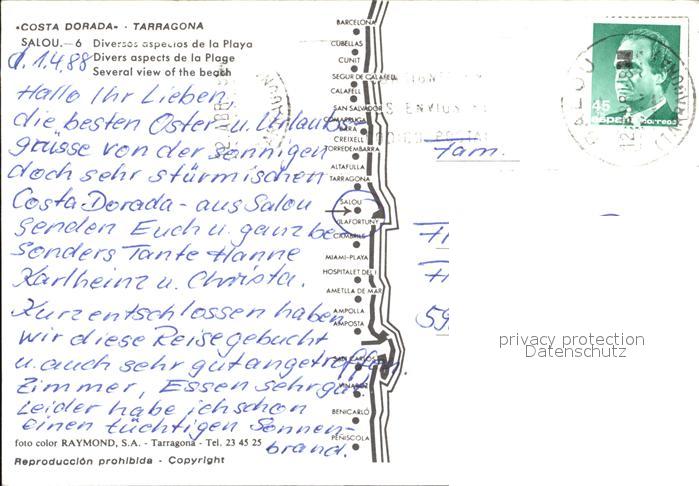 «COSTA DORADA» - TARRAGONA
SALOU.—6 Diversos aspectos de la Playa
Divers aspects de la Plage
Several view of the beach
d. 1.4.88
Hallo Ihr Lieben,
die besten Oster- u. Urlaubs-
grüsse von der sonnigen
doch sehr stürmischen
Costa-Dorada - aus Salou
senden Euch u. ganz be-
sonders Tante Hanne
Karlheinz u. Christa.
Kurzentschlossen haben
wir diese Reise gebucht
u. auch sehr gut angetroffen.
Zimmer, Essen sehr gut.
Leider habe ich schon
einen tüchtigen Sonnen-
brand.
foto color RAYMOND, S.A. - Tarragona - Tel. 23 45 25
Reproducción prohibida - Copyright
BARCELONA
CUBELLAS
CUNIT
SEGUR DE CALAFELL
CALAFELL
SAN SALVADOR
COMARRUGA
BARA
CREIXELL
TORREDEMBARRA
ALTAFULLA
TARRAGONA
SALOU
VILAFORTUNY
CAMBRILS
MIAMI-PLAYA
HOSPITALET DEL I.
AMETLLA DE MAR
AMPOLLA
AMPOSTA
SAN CARLOS
VINAROZ
BENICARLÓ
PEÑISCOLA
Fam.
59
45
españa
correos
SALOU
(TARRAGONA)
privacy protection
Datenschutz